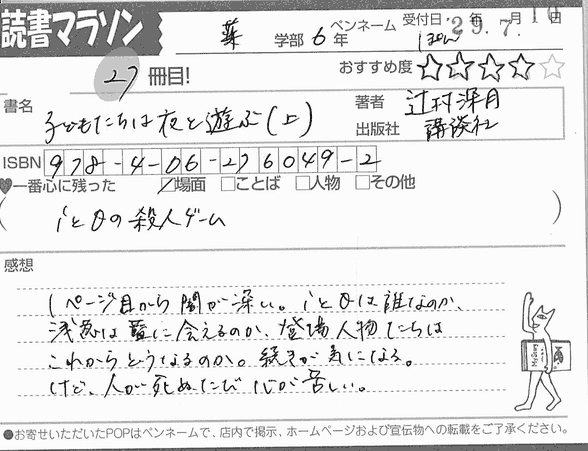 読書マラソン
薬 学部 6年
ペンネーム
受付日 29年7月10日
27 冊目!
おすすめ度 ★★★★☆
書名 子どもたちは夜と遊ぶ(上)
著者 辻村深月
出版社 講談社
ISBN 978-4-06-276049-2
一番心に残った ☑場面 □ことば □人物 □その他
( iとθの殺人ゲーム )
感想
1ページ目から闇が深い。iとθは誰なのか、
浅葱は藍に会えるのか、登場人物たちは
これからどうなるのか。続きが気になる。
けど、人が死ぬたび心が苦しい。
●お寄せいただいたPOPはペンネームで、店内で掲示、ホームページおよび宣伝物への転載をご了承ください。